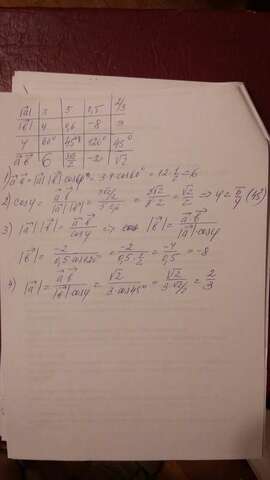 |a⃗| 3 5 0,5 2/3
|b⃗| 4 0,6 -8 3
φ 60° 45° 120° 45°
a⃗ b⃗ 6 -2 √2
1) a⃗ b⃗ = |a⃗| |b⃗| cosφ = 3·4·cos60° = 12·1/2 = 6
2) cosφ = a⃗ b⃗ / |a⃗| |b⃗| = = = √2/2 => φ = π/4 (45°)
3) |a⃗| |b⃗| = a⃗ b⃗ / cosφ => |b⃗| = a⃗ b⃗ / |a⃗| cosφ
|b⃗| = -2 / 0,5·cos120° = -2 / 0,5·1/2 = -4 / 0,5 = -8
4) |a⃗| = a⃗ b⃗ / |b⃗| cosφ = √2 / 3·cos45° = √2 / 3·√2/2 = 2/3